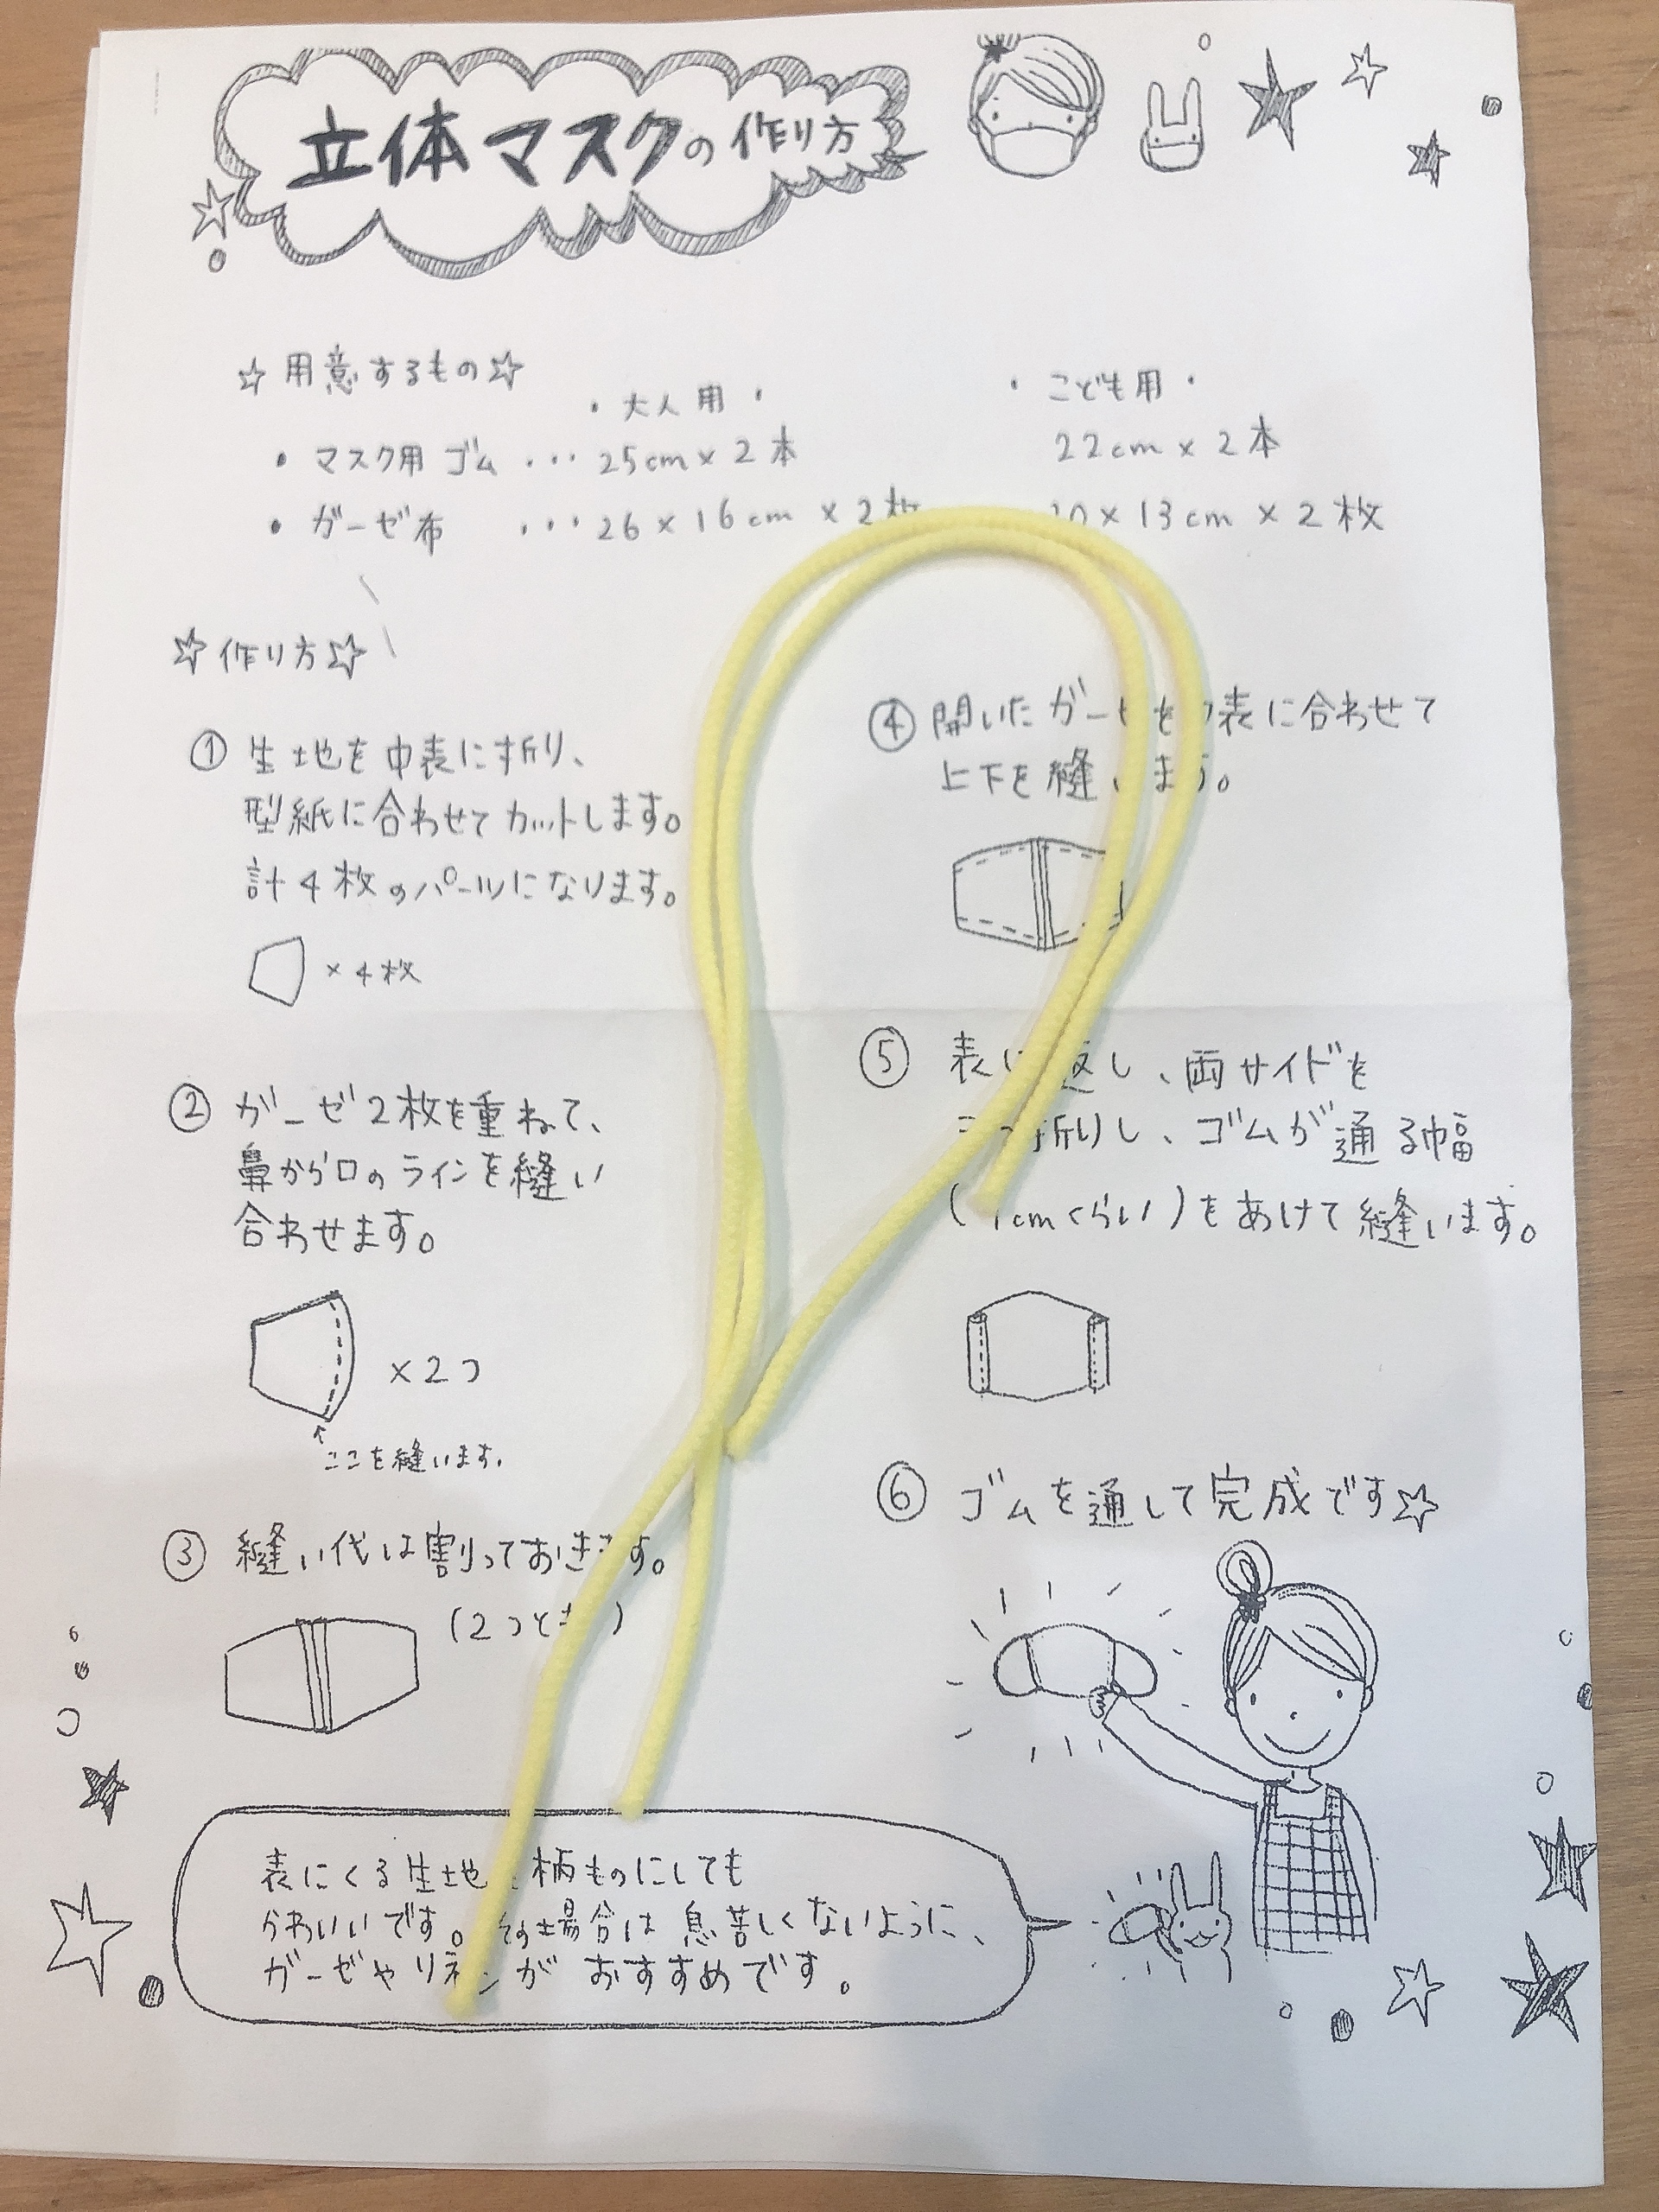 立体マスクの作り方
☆用意するもの☆
・大人用・
・こども用・
・マスク用ゴム ・・・25cm×2本
22cm×2本
・ガーゼ布 ・・・26×16cm×2枚
×13cm×2枚
☆作り方☆
① 生地を中表に折り、
型紙に合わせてカットします。
計4枚のパーツになります。
×4枚
② ガーゼ2枚を重ねて、
鼻から口のラインを縫い
合わせます。
×2つ
↑ここを縫います。
③ 縫い代は割っておきます。
(2つとも)
④ 開いたガーゼを中表に合わせて
上下を縫います。
⑤ 表に返し、両サイドを
三つ折りし、ゴムが通る幅
(1cmくらい)をあけて縫います。
⑥ ゴムを通して完成です☆
表にくる生地 柄ものにしても
かわいいです。その場合は息苦しくないように、
ガーゼやリネンがおすすめです。